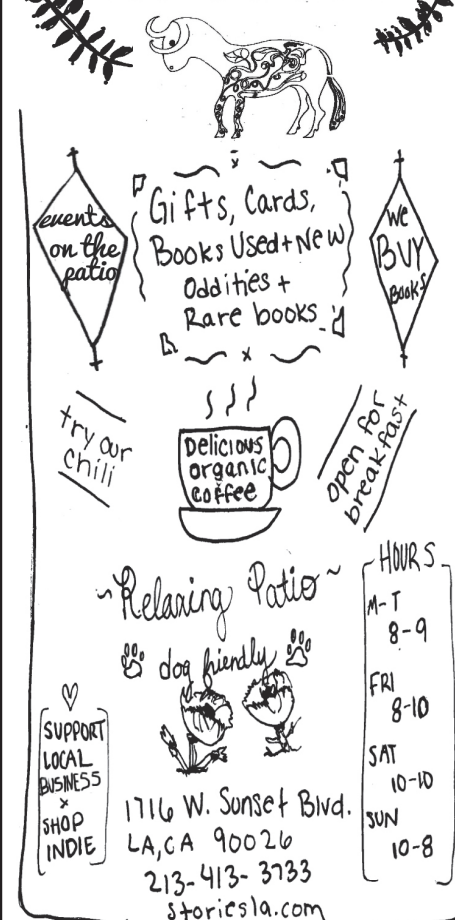 events
on the
patio
Gifts, Cards,
Books Used + New
Oddities +
Rare books
We
BUY
Books
try our
chili
Delicious
organic
coffee
open for
breakfast
~Relaxing Patio~
dog friendly
HOURS
M-T
8-9
FRI
8-10
SAT
10-10
SUN
10-8
SUPPORT
LOCAL
BUSINESS
x
SHOP
INDIE
1716 W. Sunset Blvd.
LA, CA 90026
213-413-3733
Storiesla.com